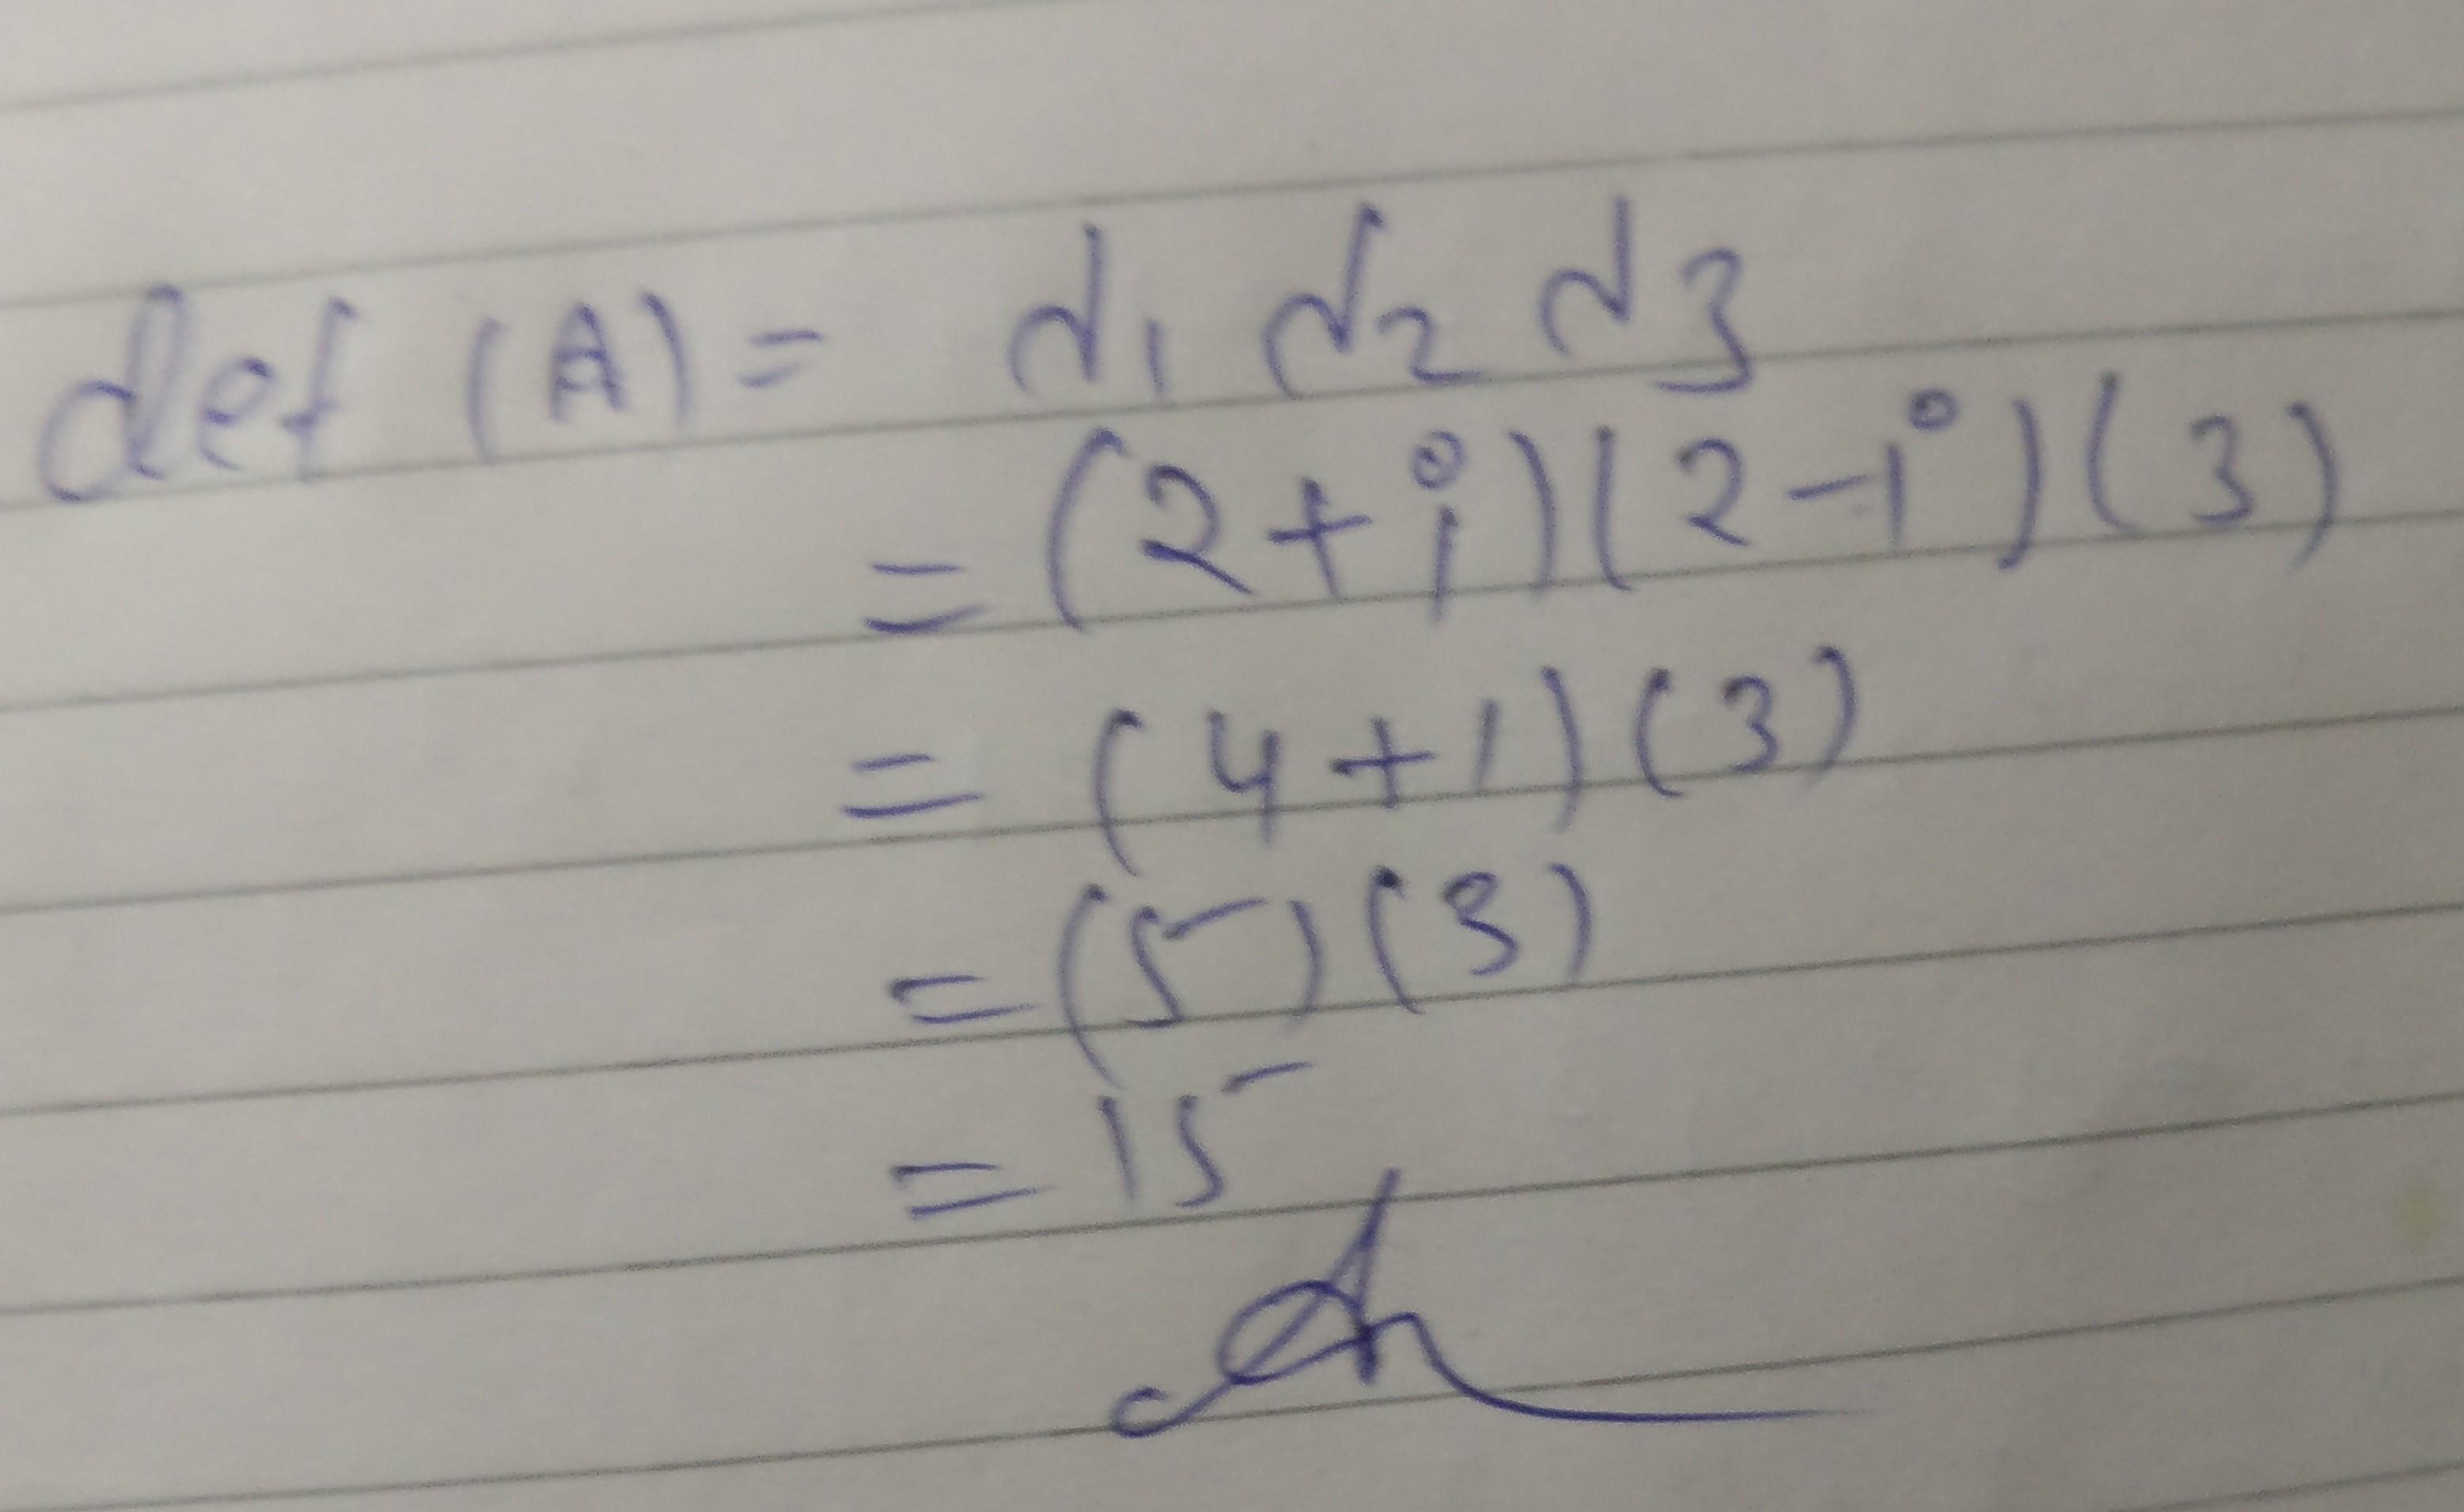 det (A) = λ₁ λ₂ λ₃
= (2 + i) (2 - i) (3)
= (4 + 1) (3)
= (5) (3)
= 15